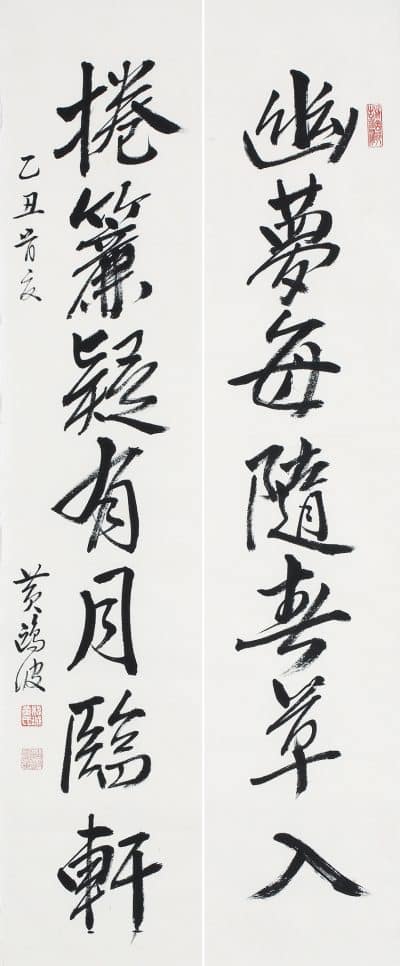 幽夢每隨春草入
捲簾疑有月臨軒
乙丑首夏
黃鷗波